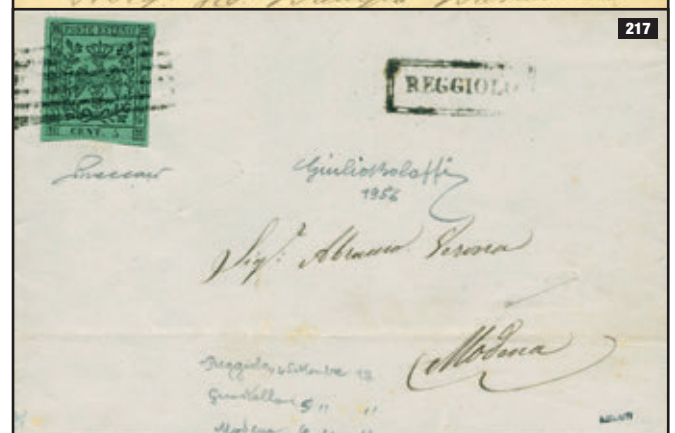 217
POSTE ESTENSI
CENT. 5
REGGIOLO
Giulio Bolaffi
1956
Sig.r Abramo Verona
Modena
Reggiolo 4 Settembre
Guastalla 5 " "
Modena